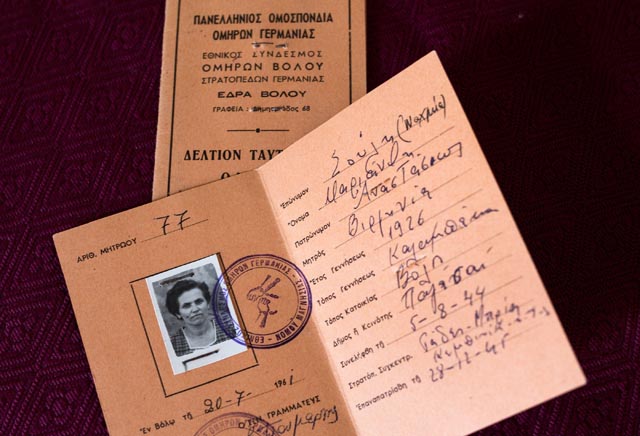 ΠΑΝΕΛΛΗΝΙΟΣ ΟΜΟΣΠΟΝΔΙΑ
ΟΜΗΡΩΝ ΓΕΡΜΑΝΙΑΣ
ΕΘΝΙΚΟΣ ΣΥΝΔΕΣΜΟΣ
ΟΜΗΡΩΝ ΒΟΛΟΥ
ΣΤΡΑΤΟΠΕΔΩΝ ΓΕΡΜΑΝΙΑΣ
ΕΔΡΑ ΒΟΛΟΥ
ΓΡΑΦΕΙΑ: Δημητριάδος 68
ΔΕΛΤΙΟΝ ΤΑΥΤ
ΑΡΙΘ. ΜΗΤΡΩΟΥ 77
Ἐν Βόλῳ τῇ 20-7-1961
Ὁ ΓΡΑΜΜΑΤΕΥΣ
Ἐπώνυμον Σούλη (Ναχμία)
Ὄνομα Μαριάνθη
Πατρώνυμον Αναστάσιος
Μητρὸς Βιργινία
Ἔτος Γεννήσεως 1926
Τόπος Γεννήσεως Καλαμπάκα
Τόπος Κατοικίας Βόλῳ
Δῆμος ἢ Κοινότης Παγασαί
Συνελήφθη τῇ 5-8-44
Στρατόπ. Συγκεντρ.
Ἐπαναπατρίσθη τῇ 28-12-45